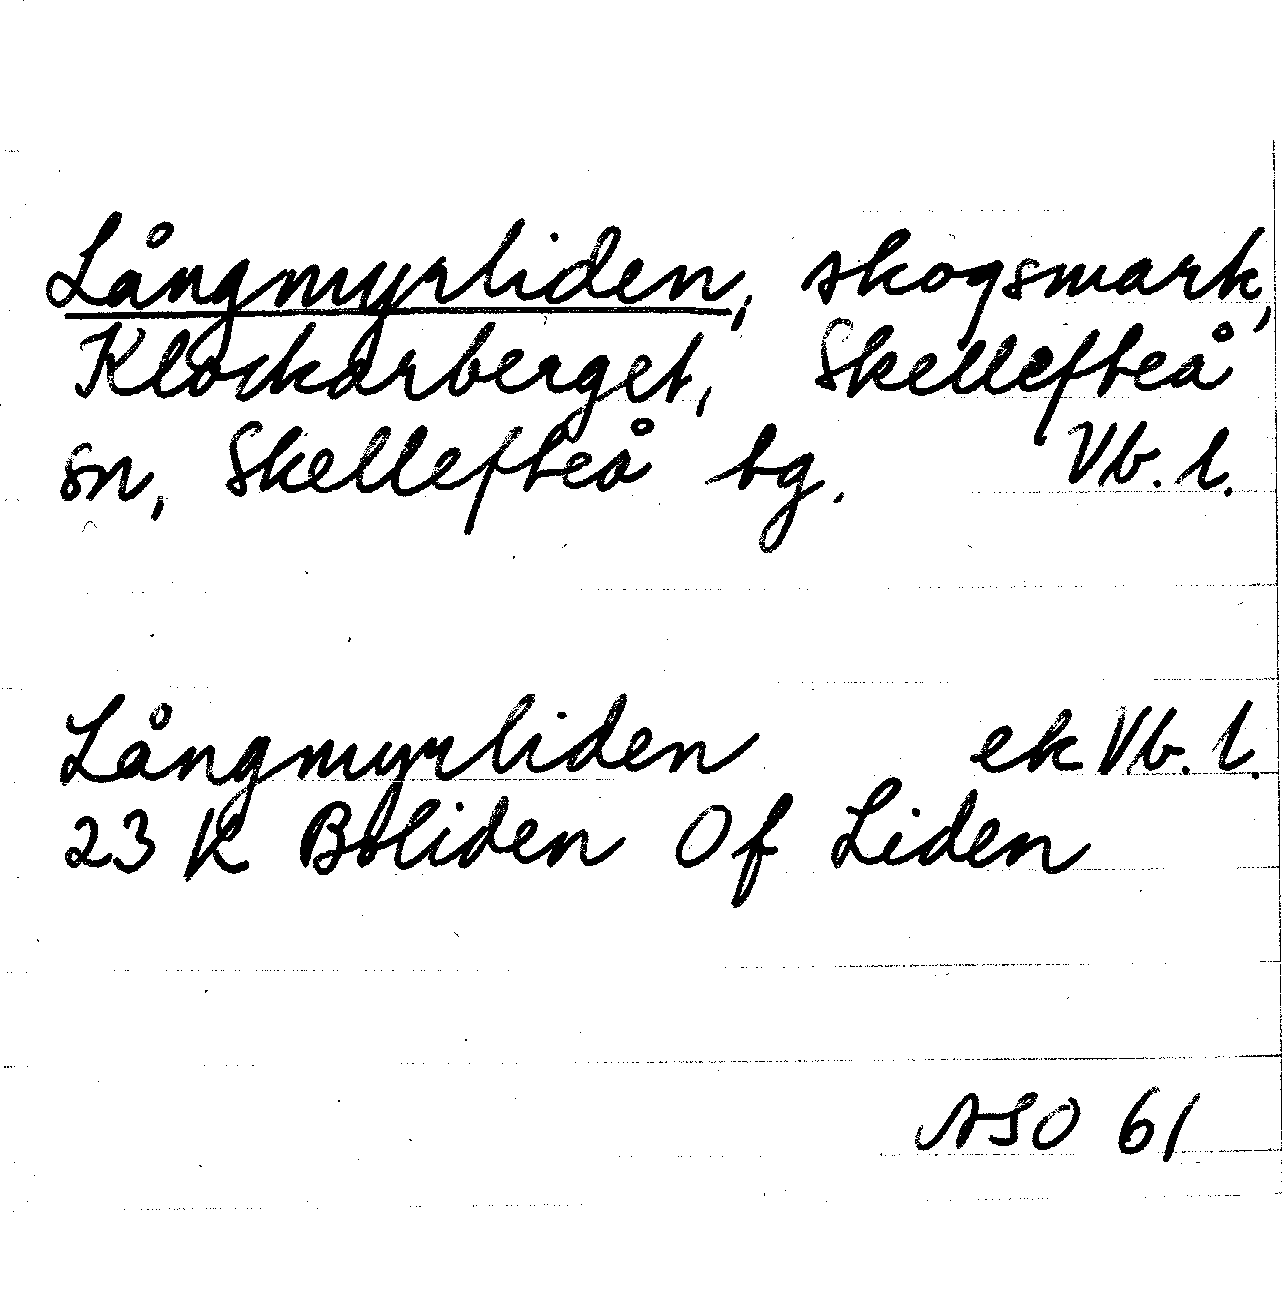 Långmyrliden, skogsmark,
Klockarberget, Skellefteå
sn, Skellefteå tg. Vb. l.
Långmyrliden ek Vb. l.
23 K Boliden Of Liden
ASO 61